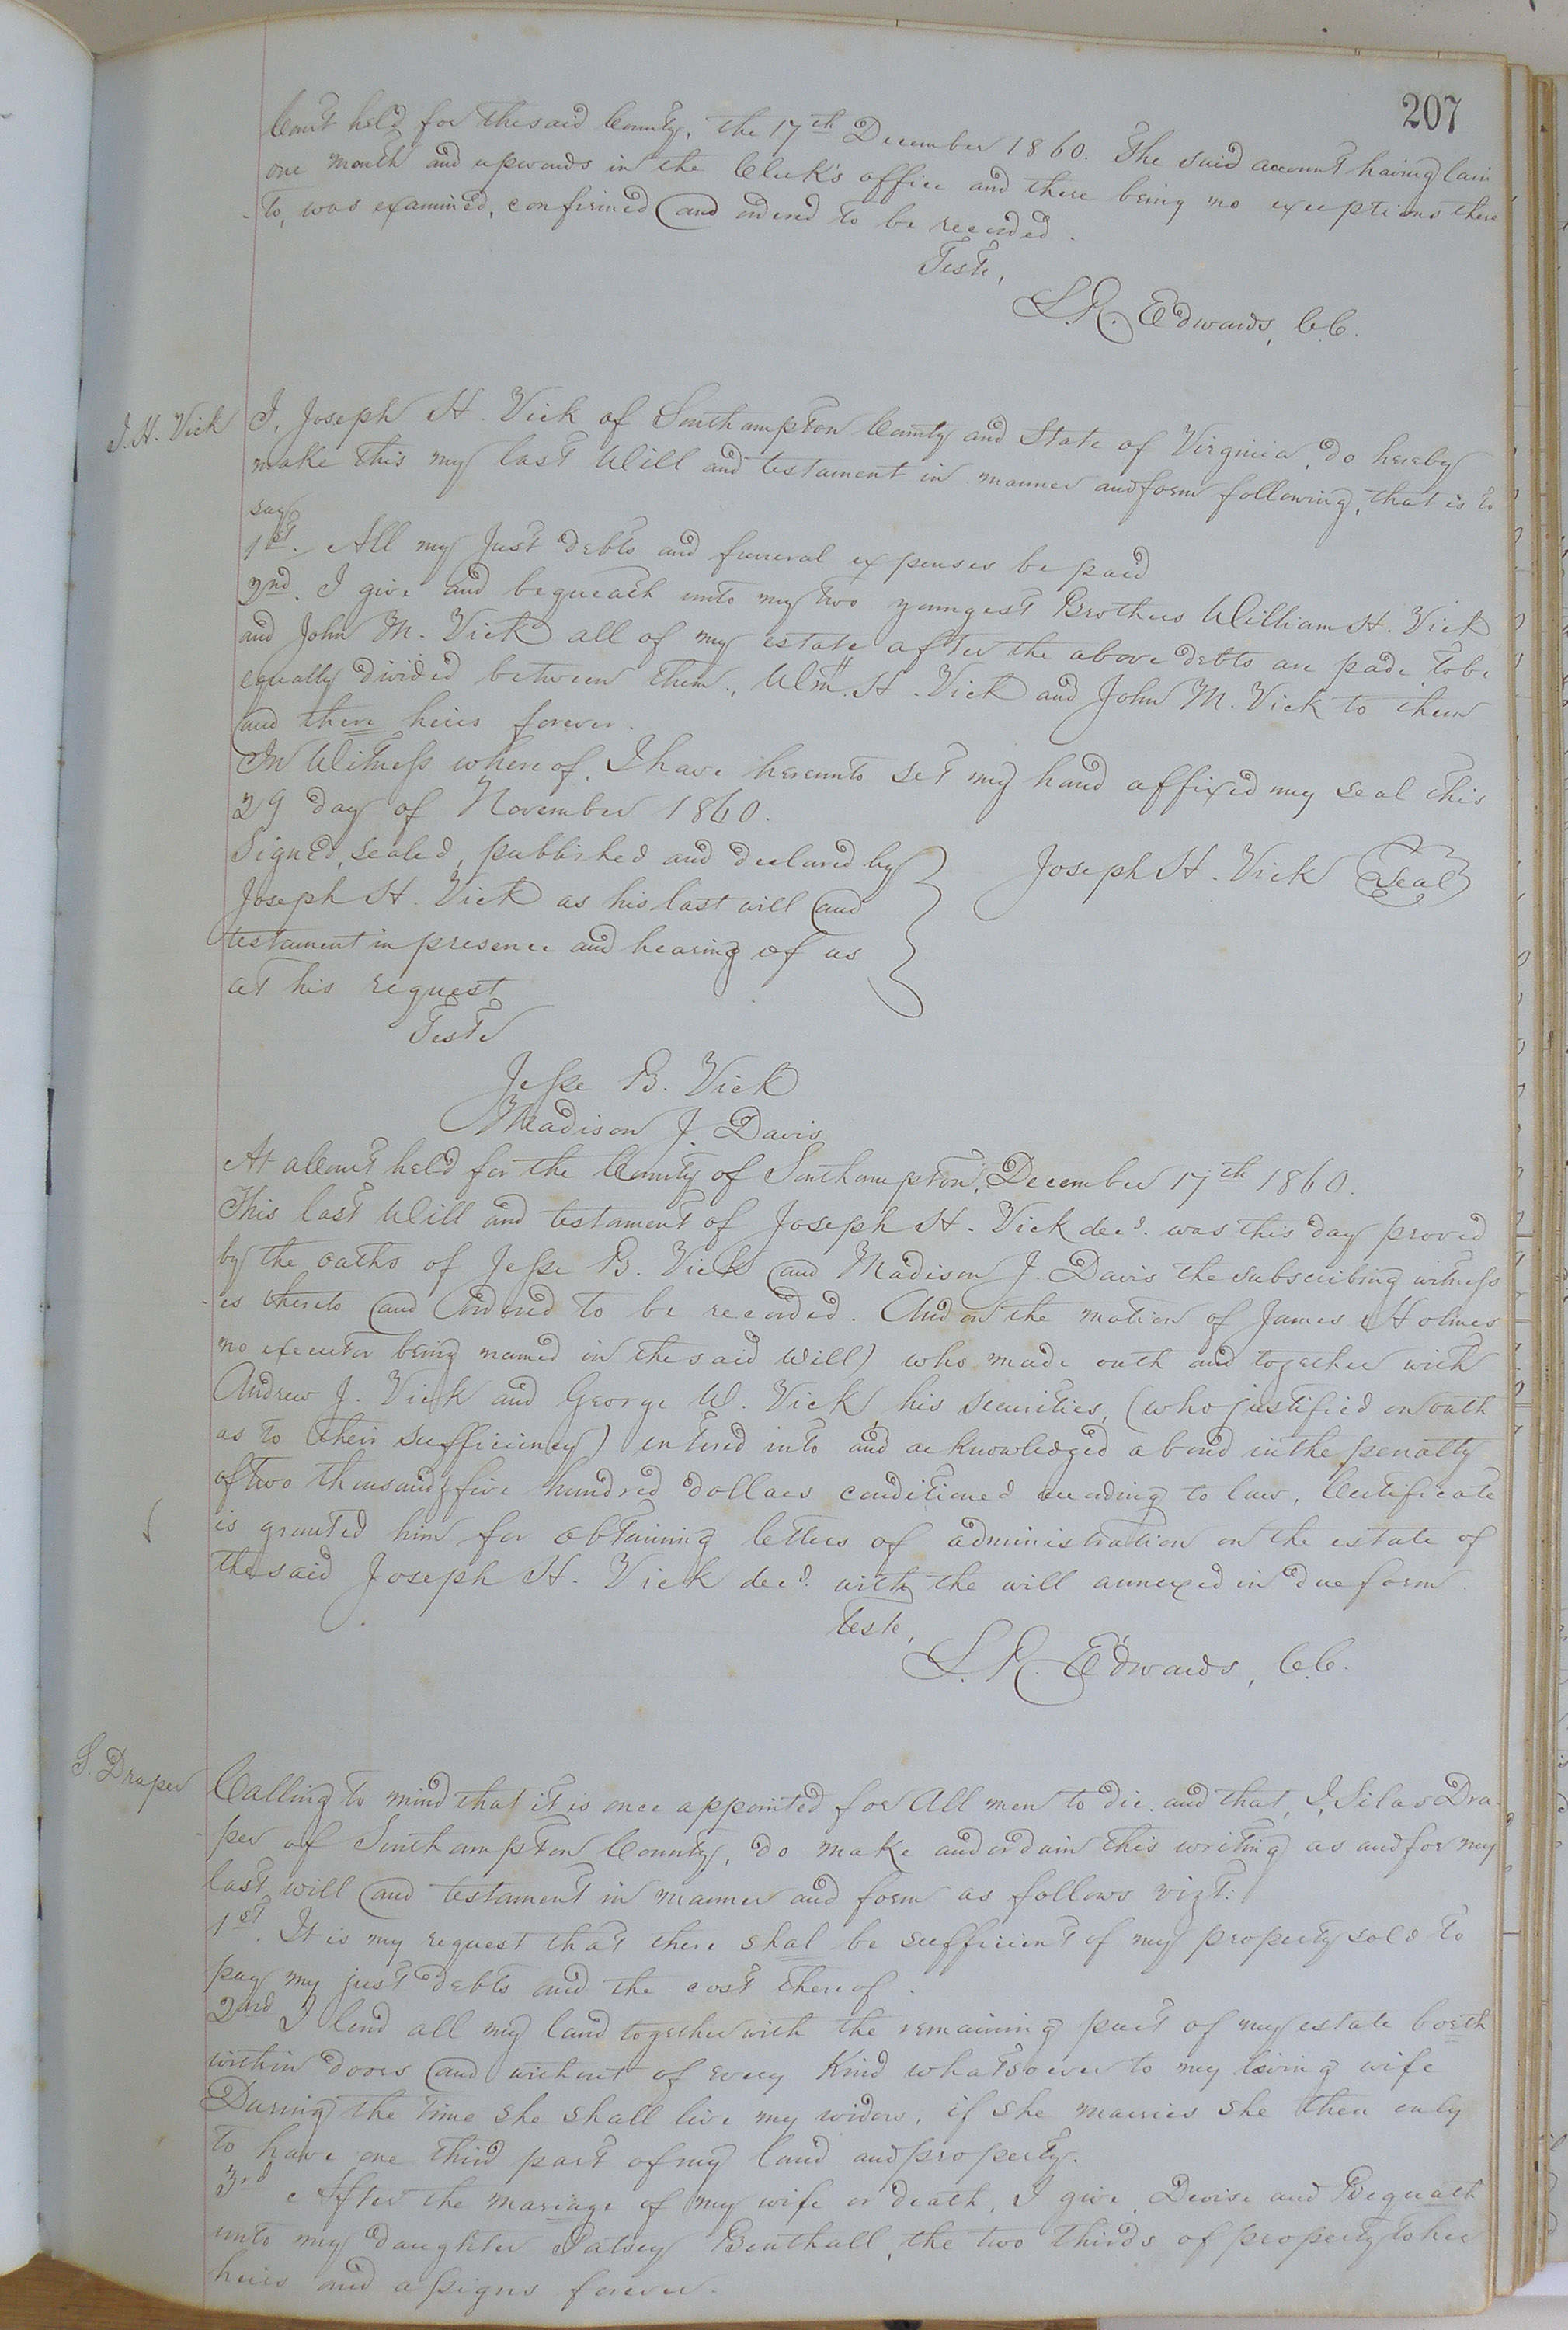 207
Court held for the said County, the 17th December 1860. The said account having lain
one month and upwards in the Clerk's office and there being no exceptions there
-to, was examined, confirmed and ordered to be recorded.
Teste,
L. R. Edwards, C.C.
J. H. Vick
I, Joseph H. Vick of Southampton County and State of Virginia, do hereby
make this my last Will and testament in manner and form following, that is to
say
1st. All my Just debts and funeral expenses be paid
2nd. I give and bequeath unto my two youngest Brothers William H. Vick
and John M. Vick all of my estate after the above debts are pade to be
equally divided between them, Wm. H. Vick and John M. Vick to them
and there heirs forever.
In Witness whereof, I have hereunto set my hand affixed my seal this
29 day of November 1860.
Signed, sealed, published and declared by
Joseph H. Vick as his last will and
testament in presence and hearing of us
at his request
Joseph H. Vick Seal
Teste
Jesse B. Vick
Madison J. Davis
At a Court held for the County of Southampton, December 17th 1860.
This last Will and testament of Joseph H. Vick decd. was this day proved
by the oaths of Jesse B. Vick and Madison J. Davis the subscribing witness
-es thereto and Ordered to be recorded. And on the motion of James Holmes
no executor being named in the said Will) who made oath and together with
Andrew J. Vick and George W. Vick, his securities, (who justified on oath
as to their sufficiency) entered into and acknowledged a bond in the penalty
of two thousand five hundred dollars conditioned according to law, Certificate
is granted him for obtaining letters of administration on the estate of
the said Joseph H. Vick decd. with the will annexed in due form.
Teste,
L. R. Edwards, C.C.
S. Draper
Calling to mind that it is once appointed for All men to die. and that, I, Silas Dra-
per of Southampton County, do make and ordain this writing as and for my
last will and testament in manner and form as follows vizt:
1st. It is my request that there shal be sufficient of my property sold to
pay my just debts and the cost thereof.
2nd I lend all my land together with the remaining part of my estate boeth
within doors and without of every Kind whatsoever to my loving wife
During the time she shall live my widow, if she marries she then only
to have one third part of my land and property.
3rd After the mariage of my wife or death, I give, Devise and Bequath
unto my daughter Patsey Beuthall, the two thirds of property to her
heirs and assigns forever.